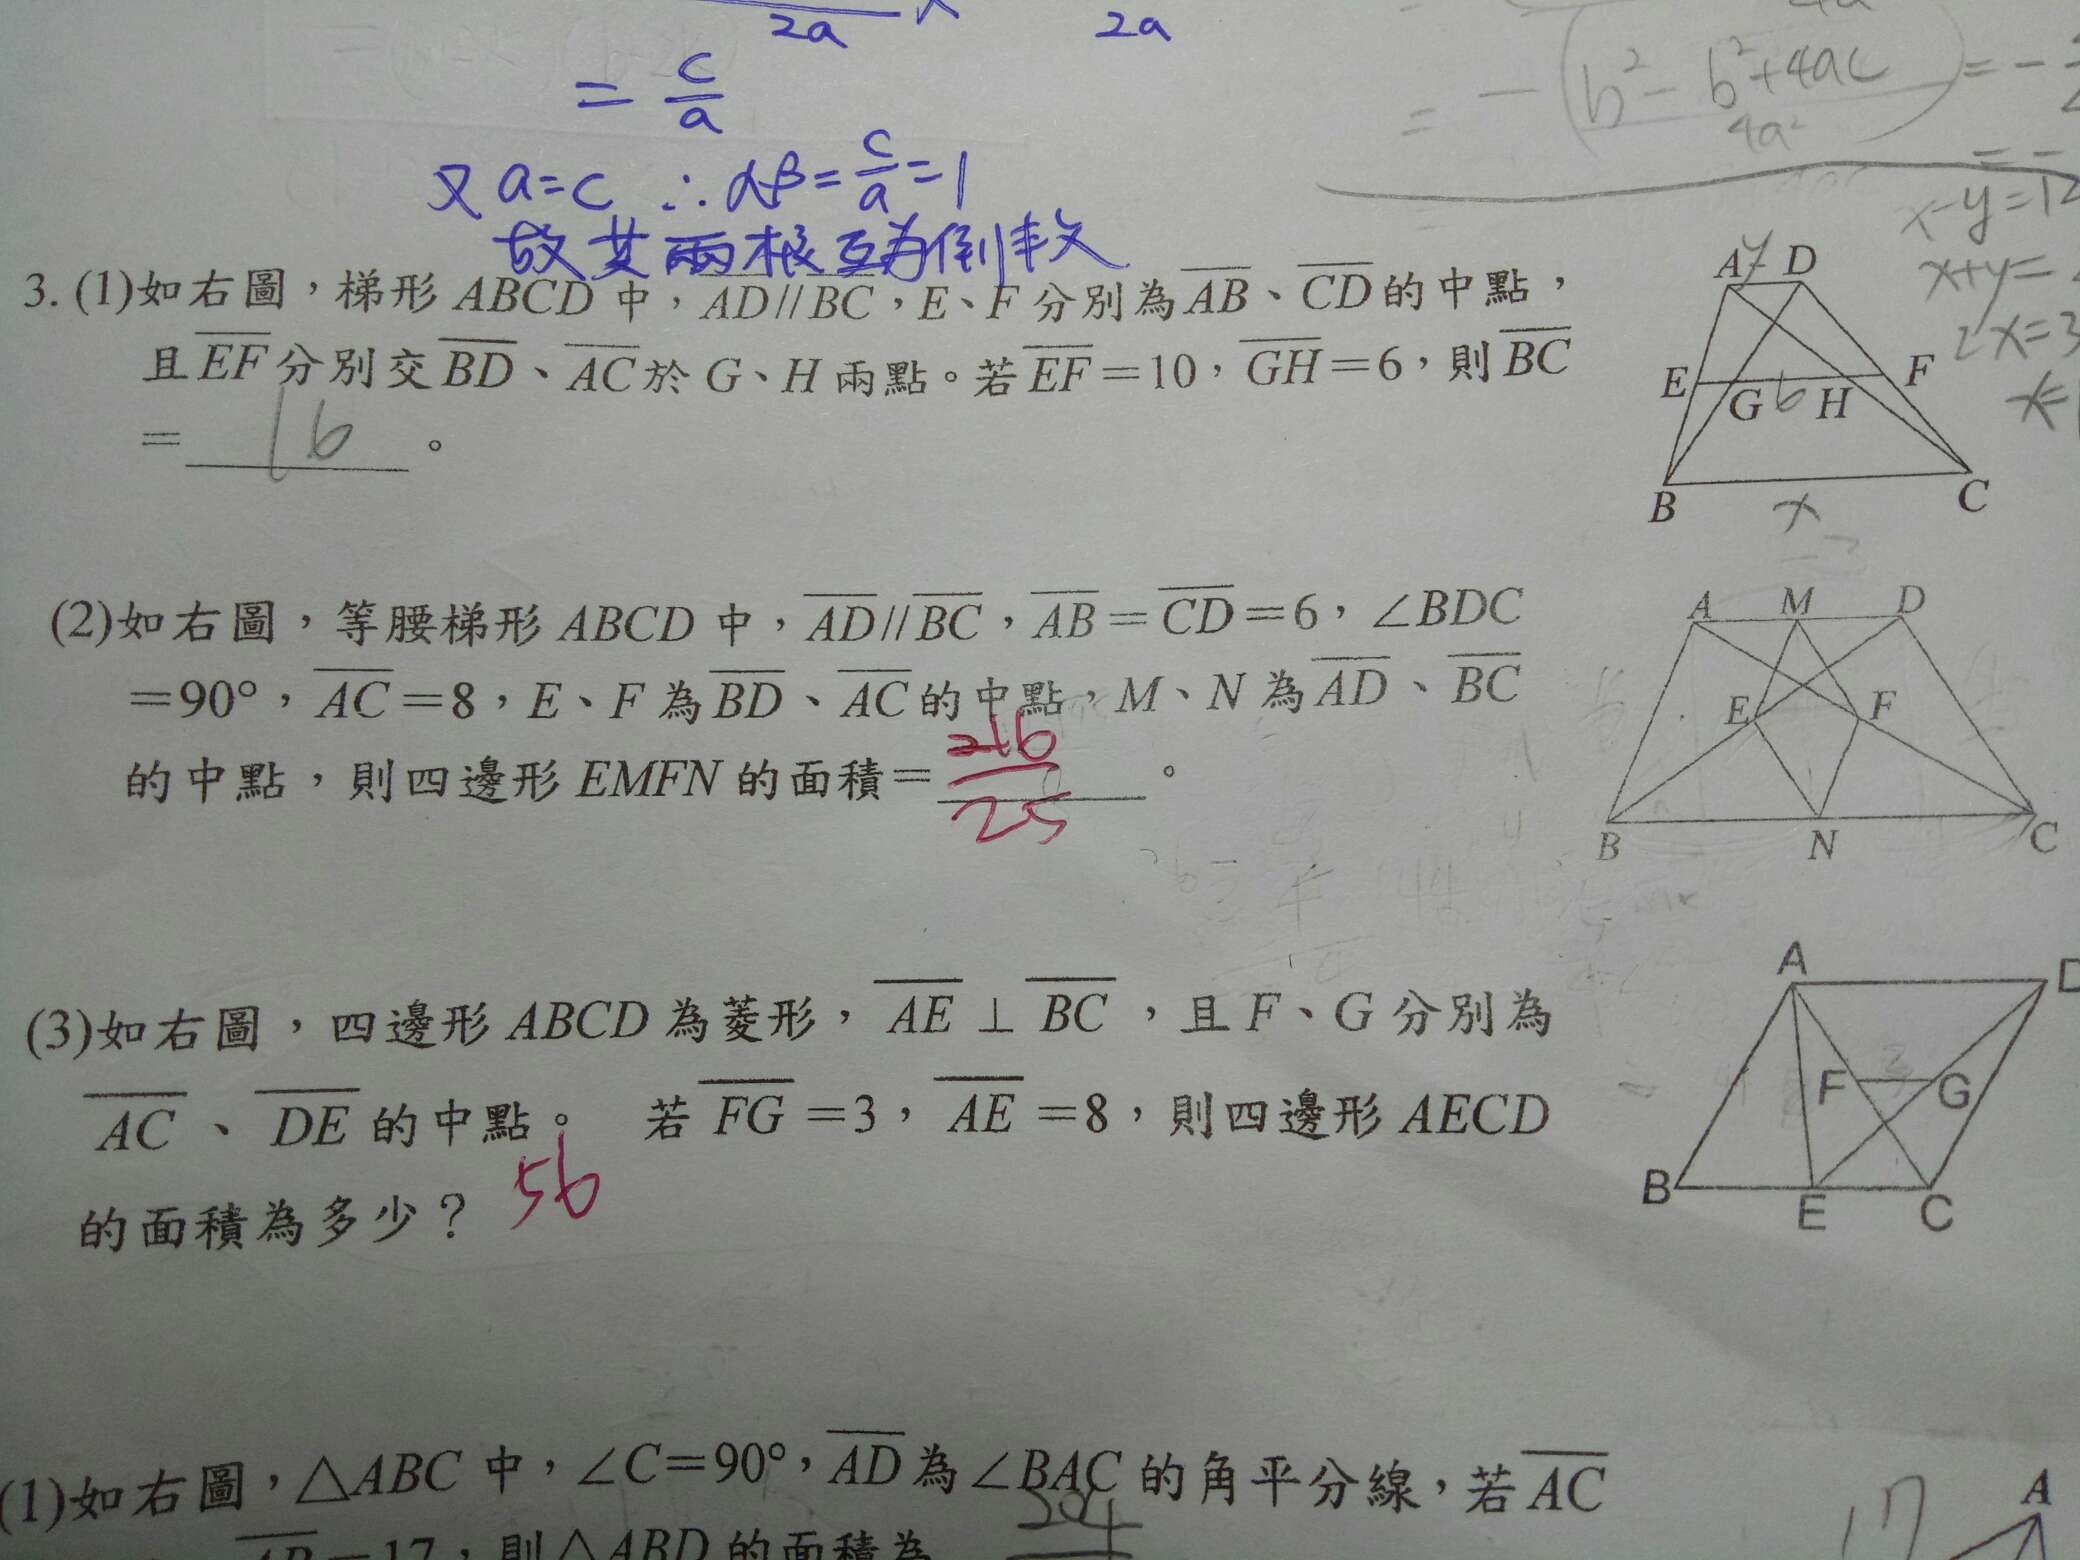 2a 2a
= c/a
又 a=c ∴ αβ = c/a = 1
故其兩根互為倒數
- (b² - b² + 4ac / 4a²) = -
x-y=12
x+y=
2x=3
x=
3. (1)如右圖，梯形 ABCD 中，AD//BC，E、F 分別為AB、CD的中點，
且EF分別交BD、AC於 G、H 兩點。若EF=10，GH=6，則BC
= 16 。
A y D
E F
G 6 H
B C
x
(2)如右圖，等腰梯形 ABCD 中，AD//BC，AB=CD=6，∠BDC
=90°，AC=8，E、F 為BD、AC的中點，M、N 為AD、BC
的中點，則四邊形 EMFN 的面積= 216/25 。
A M D
E F
B N C
(3)如右圖，四邊形 ABCD 為菱形，AE⊥BC，且 F、G 分別為
AC、DE 的中點。 若 FG=3，AE=8，則四邊形 AECD
的面積為多少？ 56
A D
F 3 G
B E C
(1)如右圖，△ABC 中，∠C=90°，AD為∠BAC 的角平分線，若AC
AB=17，則△ABD 的面積為
17 A